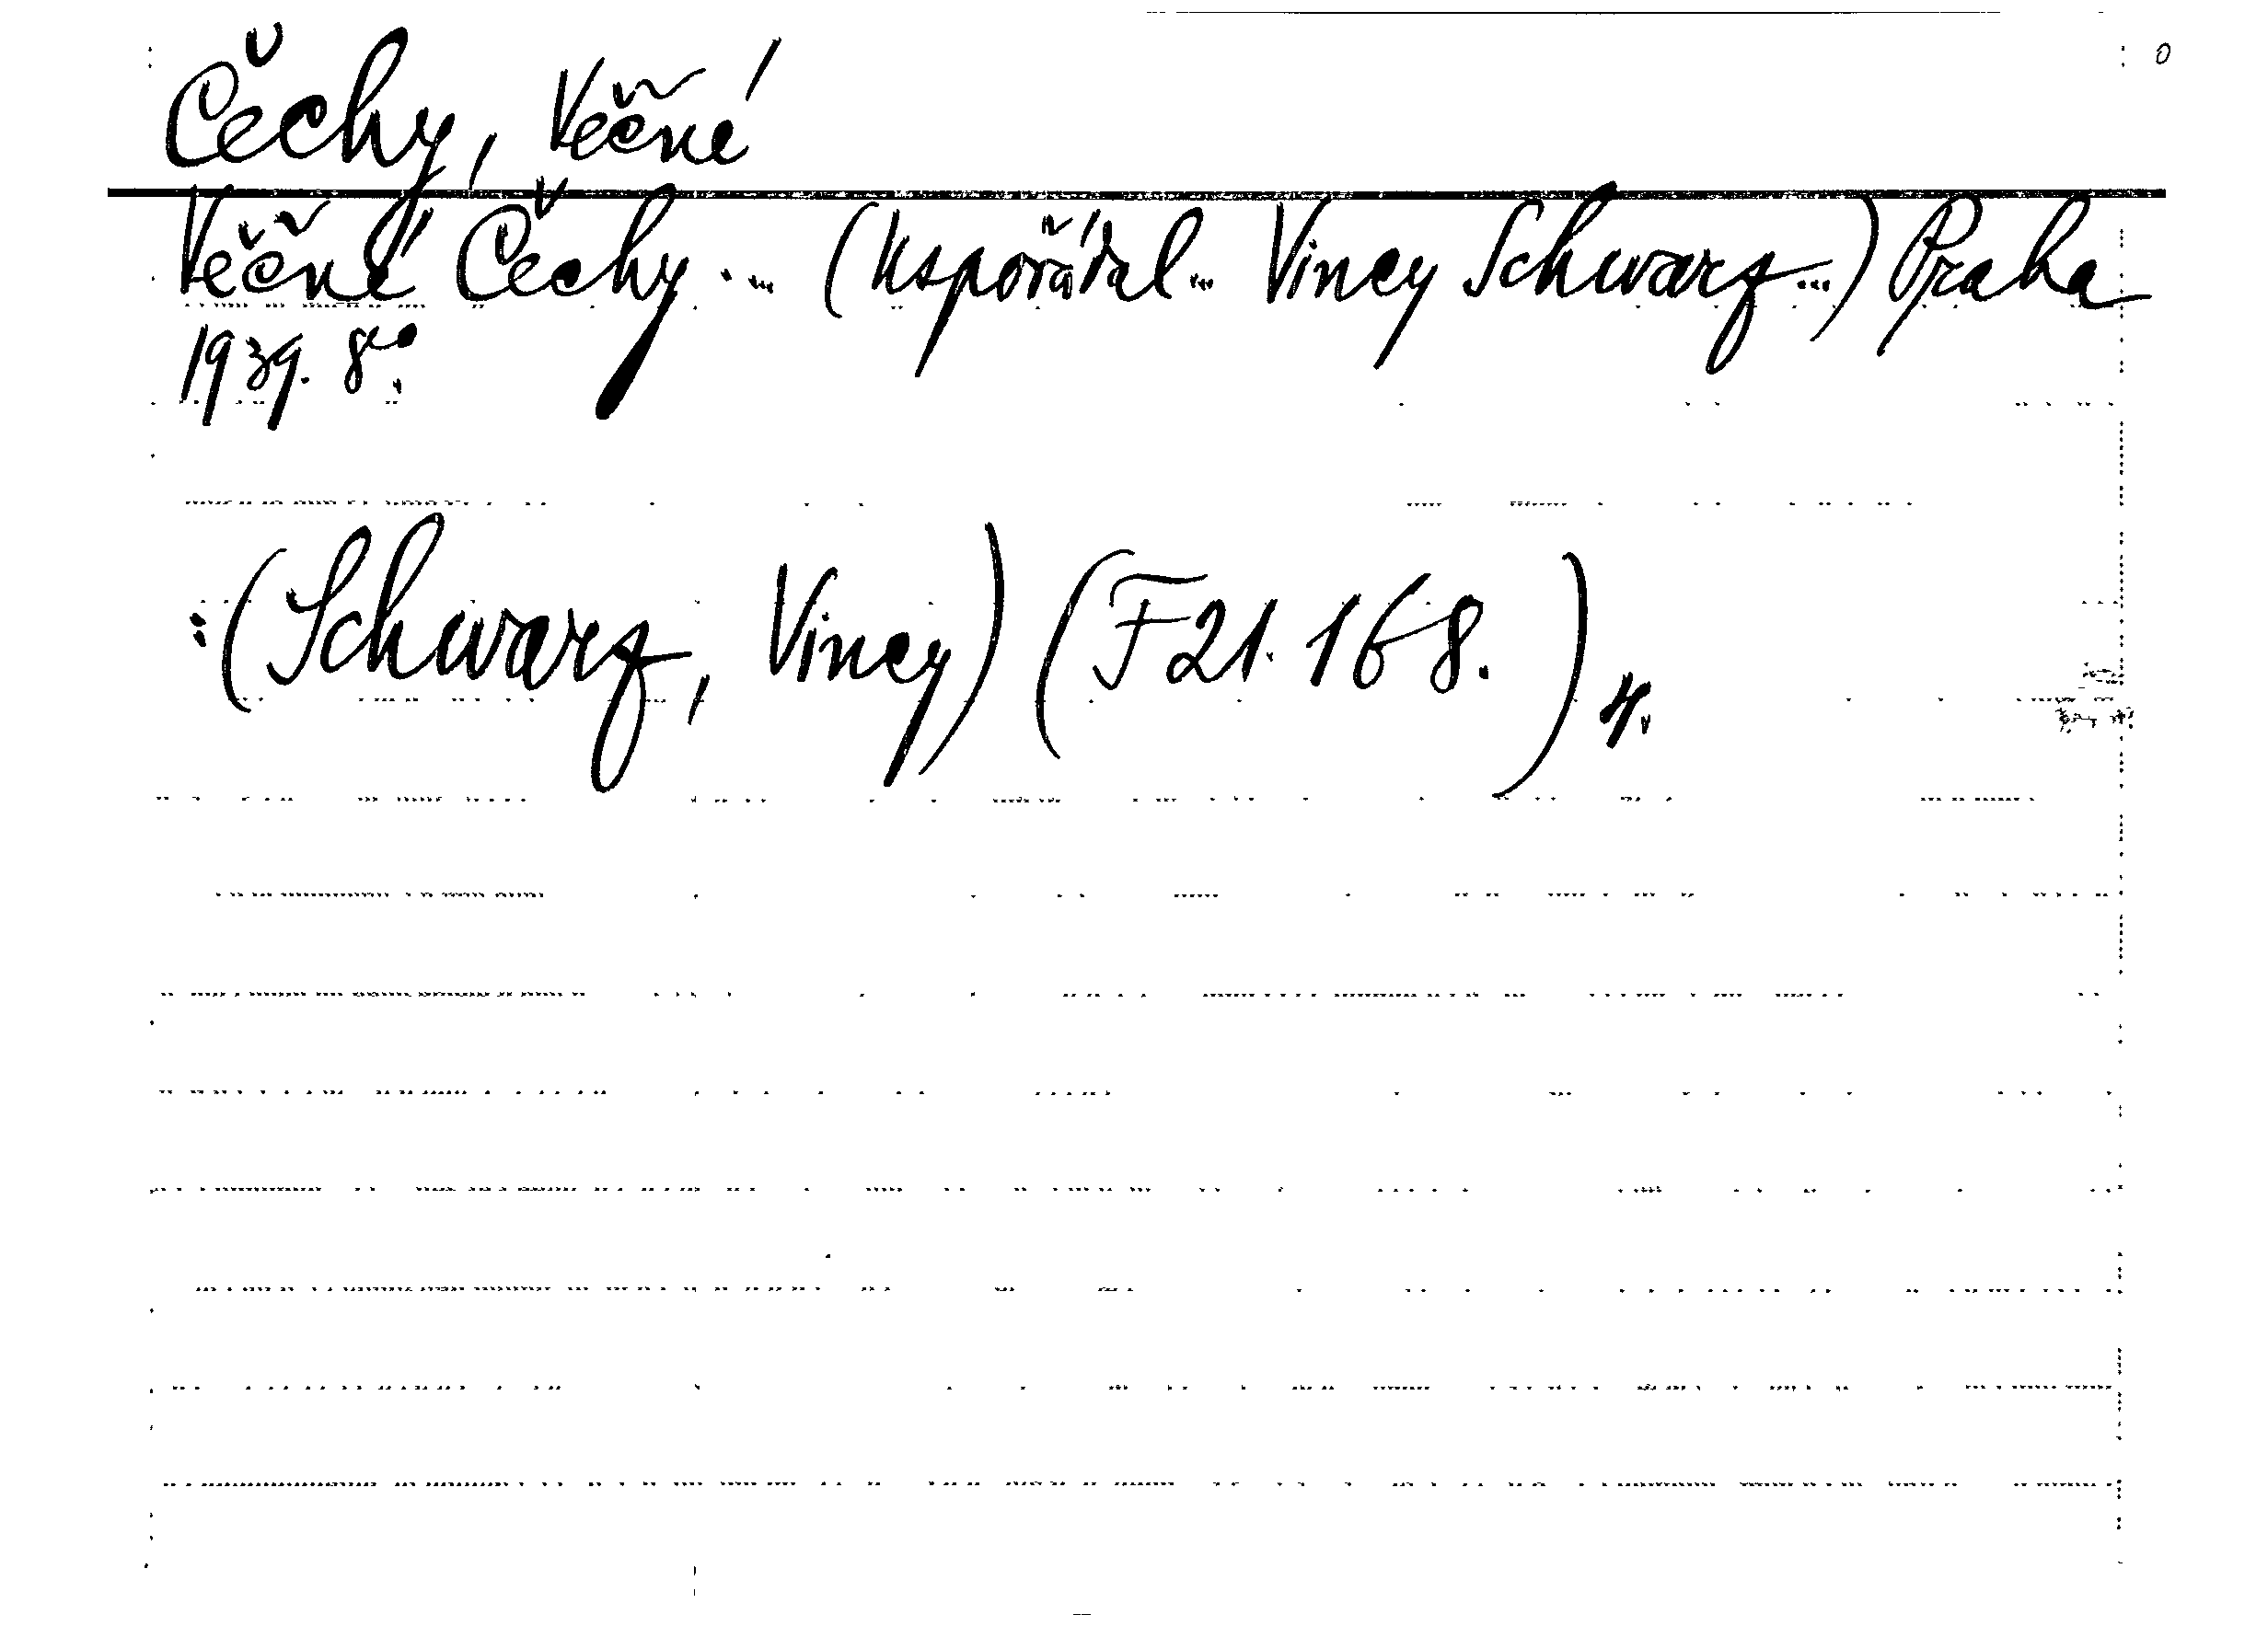 Čechy, Věčné
Věčné Čechy ... (Uspořádal ... Vincy Schwarz ...) Praha
1939. 8°.
: (Schwarz, Vincy) (F 21.168.) 4.